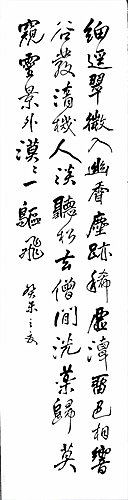 細逕翠微入幽香塵跡稀虛潭留色相響
谷發清機人淡聽松去僧閒洗葉歸莫
窺靈景外漠〻一驅飛
癸未之